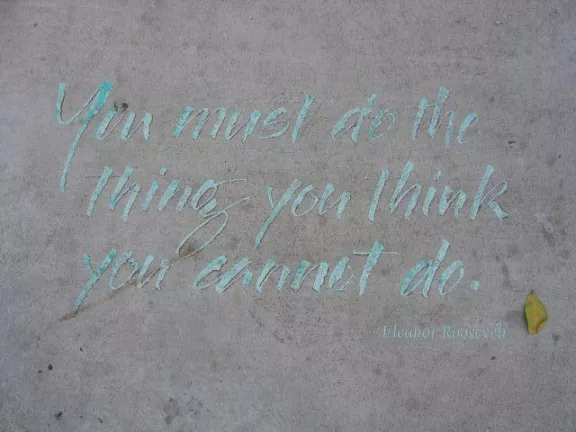 You must do the
thing you think
you cannot do.
Eleanor Roosevelt